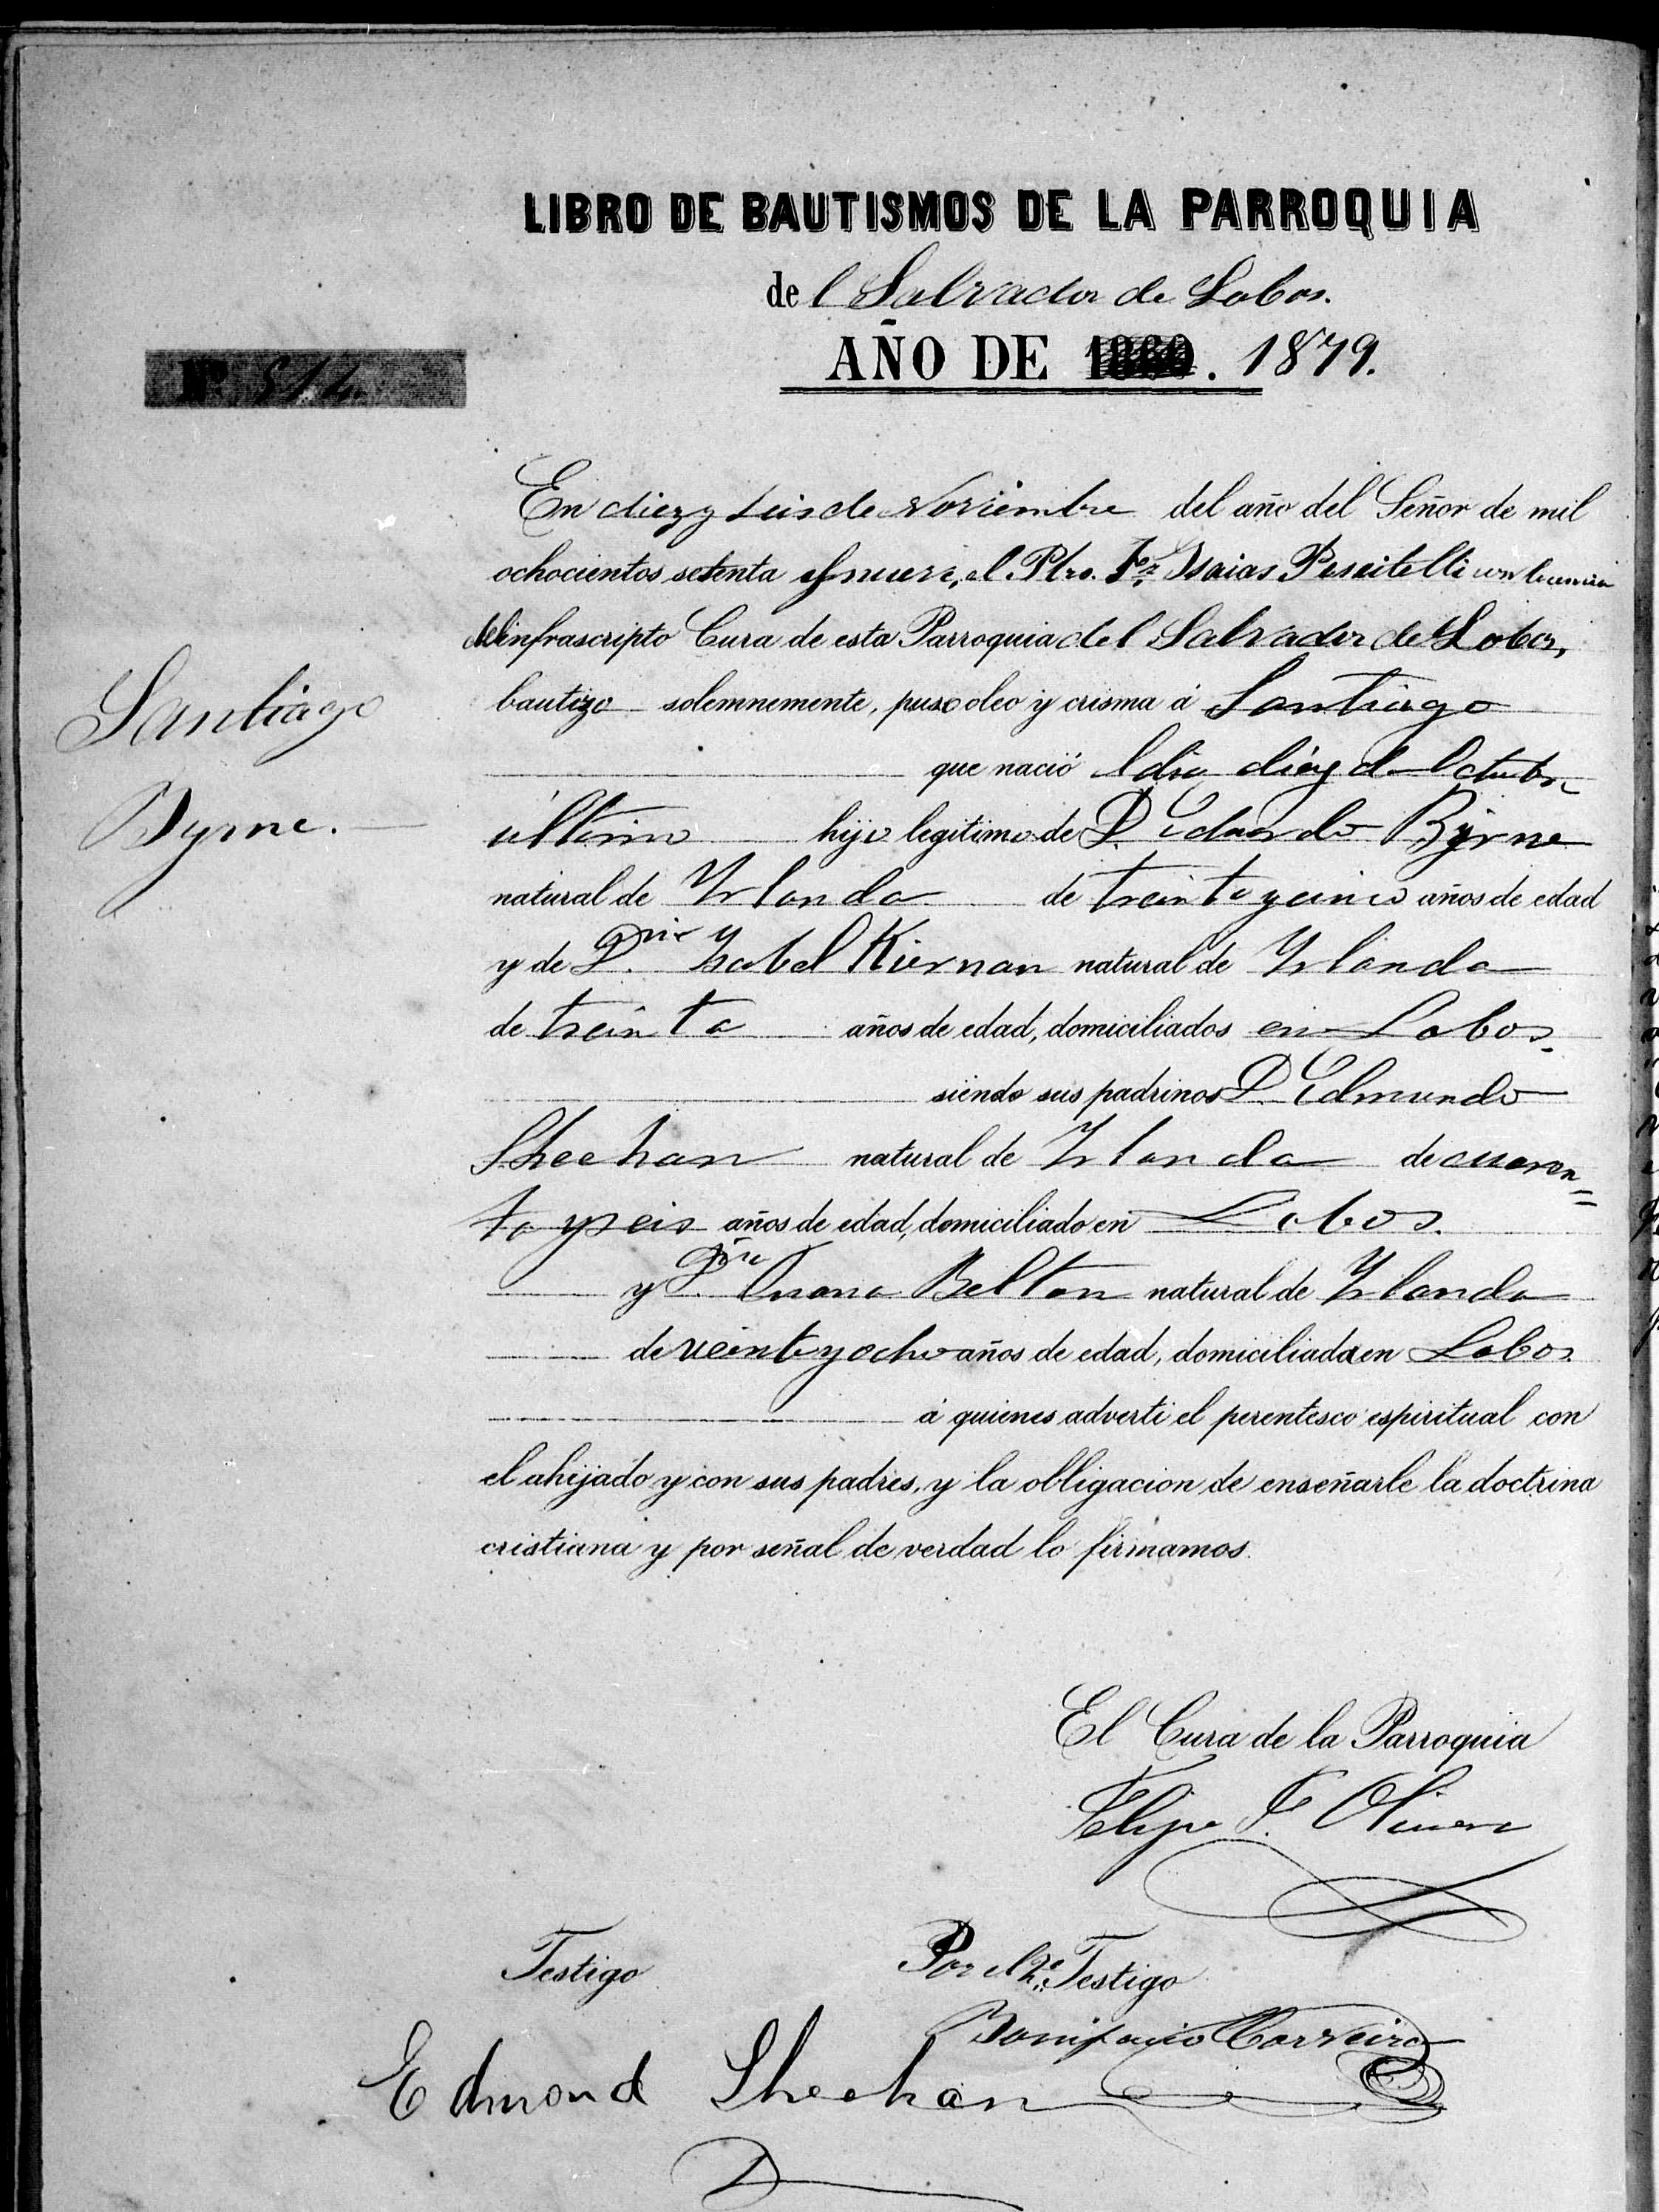 LIBRO DE BAUTISMOS DE LA PARROQUIA
del Salvador de Lobos.
AÑO DE 1879.
Nº 514.
En diez y seis de Noviembre del año del Señor de mil
ochocientos setenta y nueve, el Pbro. Isaias Pescitelli con licencia
del infrascripto Cura de esta Parroquia del Salvador de Lobos,
bautizo solemnemente, puso oleo y crisma á Santiago
que nació el dia diez de Octubre
último hijo legitimo de D. Eduardo Byrne
natural de Yrlanda de treinta y cinco años de edad
y de Dña. Ysabel Kiernan natural de Yrlanda
de treinta años de edad, domiciliados en Lobos.
siendo sus padrinos D. Edmundo
Sheehan natural de Yrlanda de cuaren=
ta y seis años de edad, domiciliado en Lobos.
y Dña. Juana Belton natural de Yrlanda
de veinte y ocho años de edad, domiciliada en Lobos
á quienes adverti el perentesco espiritual con
el ahijado y con sus padres, y la obligacion de enseñarle la doctrina
cristiana y por señal de verdad lo firmamos.
Santiago
Byrne.
El Cura de la Parroquia
Felipe F. Olivera
Testigo
Por el 2º Testigo
Bonifacio Carreira
Edmond Sheehan